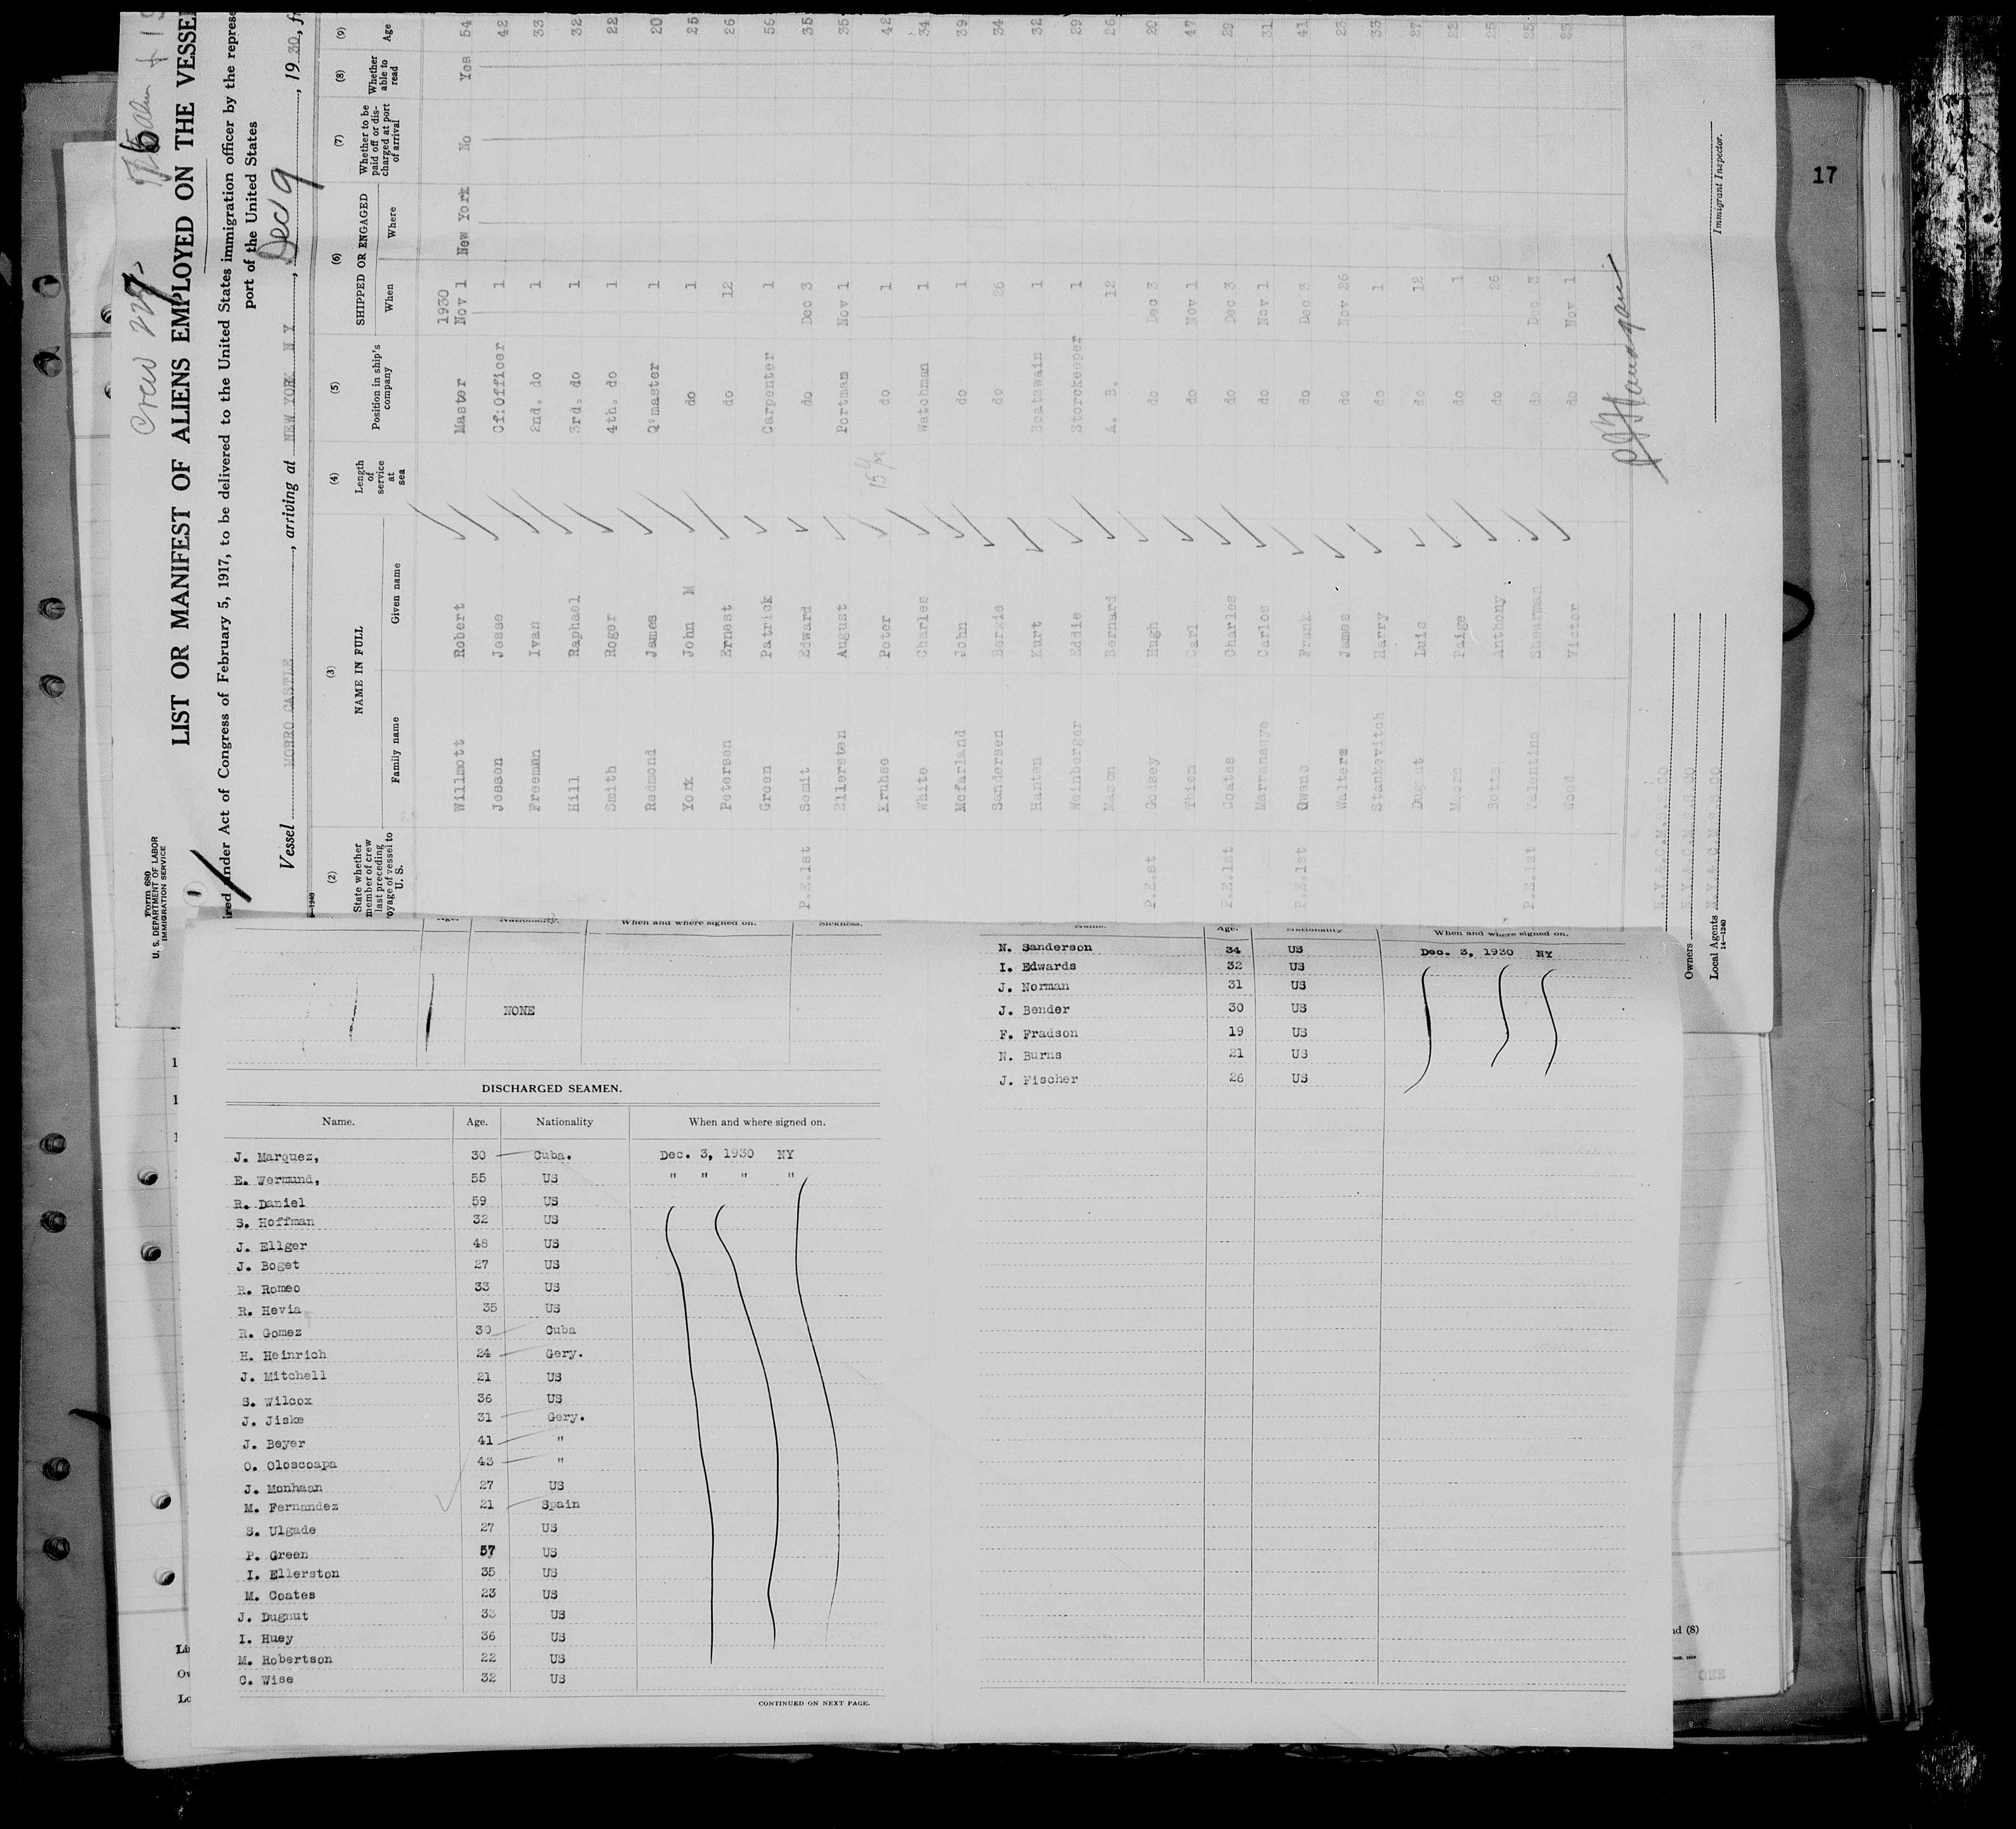 17
Form 680
U. S. DEPARTMENT OF LABOR
IMMIGRATION SERVICE
Crew
1
LIST OR MANIFEST OF ALIENS EMPLOYED ON THE VESSEL
under Act of Congress of February 5, 1917, to be delivered to the United States immigration officer by the represe
port of the United States
Vessel MORRO CASTLE, arriving at NEW YORK N Y, Dec 9, 1930, f
(2) (3) (4) (5) (6) (7) (8) (9)
State whether member of crew last preceding voyage of vessel to U. S. NAME IN FULL Length of service at sea Position in ship's company SHIPPED OR ENGAGED Whether to be paid off or discharged at port of arrival Whether able to read Age
Family name Given name When Where
1930
Willmott Robert Master Nov 1 New York No Yes 54
Jesson Jesse Cf:Officer 1 42
Freeman Ivan 2nd. do 1 33
Hill Raphael 3rd. do 1 32
Smith Roger 4th. do 1 22
Redmond James Q'master 1 20
York John M do 1 25
Petersen Ernest do 12 26
Green Patrick Carpenter 1 56
P.E.1st Semit Edward do Dec 3 35
Ellersten August Portman Nov 1 35
Kruhse Peter 15 do 1 42
White Charles Watchman 1 34
Mcfarland John do 1 39
Sandersen Bergie do 26 34
Hanten Kurt Boatswain 1 32
Weinberger Eddie Storekeeper 1 29
Mason Bernard A. B. 12 26
P.E.st Godsey Hugh do Dec 3 20
Thiem Carl do Nov 1 47
P.E.1st Coates Charles do Dec 3 29
Marranauye Carlos do Nov 1 31
P.E.1st Owens Frank do Dec 3 41
Walters James do Nov 26 23
Stankevitch Harry do 1 33
Dugat Luis do 12 27
Moore Paige do 1 22
Bots Anthony do 26 25
P.E.1st Valentino Shearman do Dec 3 25
Wood Victor do Nov 1 23
Owners
Local Agents
14—1240
Immigrant Inspector.
Age. Nationality. When and where signed on. Sickness.
NONE
DISCHARGED SEAMEN.
Name. Age. Nationality When and where signed on.
J. Marquez, 30 Cuba. Dec. 3, 1930 NY
E. Wermund, 55 US " " " "
R. Daniel 59 US
S. Hoffman 32 US
J. Ellger 48 US
J. Boget 27 US
R. Romeo 33 US
R. Hevia 35 US
R. Gomez 30 Cuba
H. Heinrich 24 Gery.
J. Mitchell 21 US
S. Wilcox 36 US
J. Jiske 31 Gery.
J. Beyer 41 "
O. Oloscoapa 43 "
J. Monhaan 27 US
M. Fernandez 21 Spain
S. Ulgade 27 US
P. Green 57 US
I. Ellerston 35 US
M. Coates 23 US
J. Dugnut 33 US
I. Huey 36 US
M. Robertson 22 US
C. Wise 32 US
CONTINUED ON NEXT PAGE.
Name. Age. Nationality When and where signed on.
N. Sanderson 34 US Dec. 3, 1930 NY
I. Edwards 32 US
J. Norman 31 US
J. Bender 30 US
F. Fradson 19 US
N. Burns 21 US
J. Fischer 26 US
nd (8)
ONE